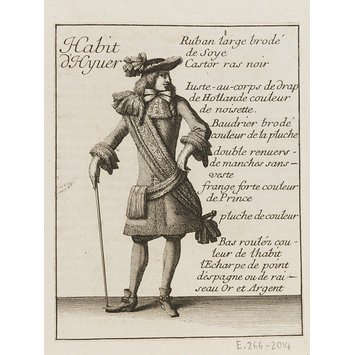 Habit
d'Hyuer
Ruban large brodé
de Soye
Castor ras noir
Iuste-au-corps de drap
de Hollande couleur
de noisette.
Baudrier brodé
couleur de la pluche
double renuers-
de manches sans-
veste
frange forte couleur
de Prince
pluche de couleur
Bas roulez cou-
leur de l'habit
l'Echarpe de point
d'espagne ou de rai-
seau Or et Argent
E.266-2014